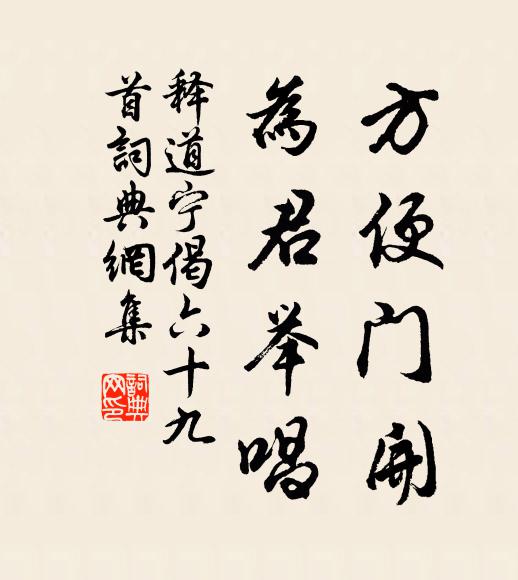 方便门开
為君举唱
释道宁偈六十九
首詞典網集
詞典
网印